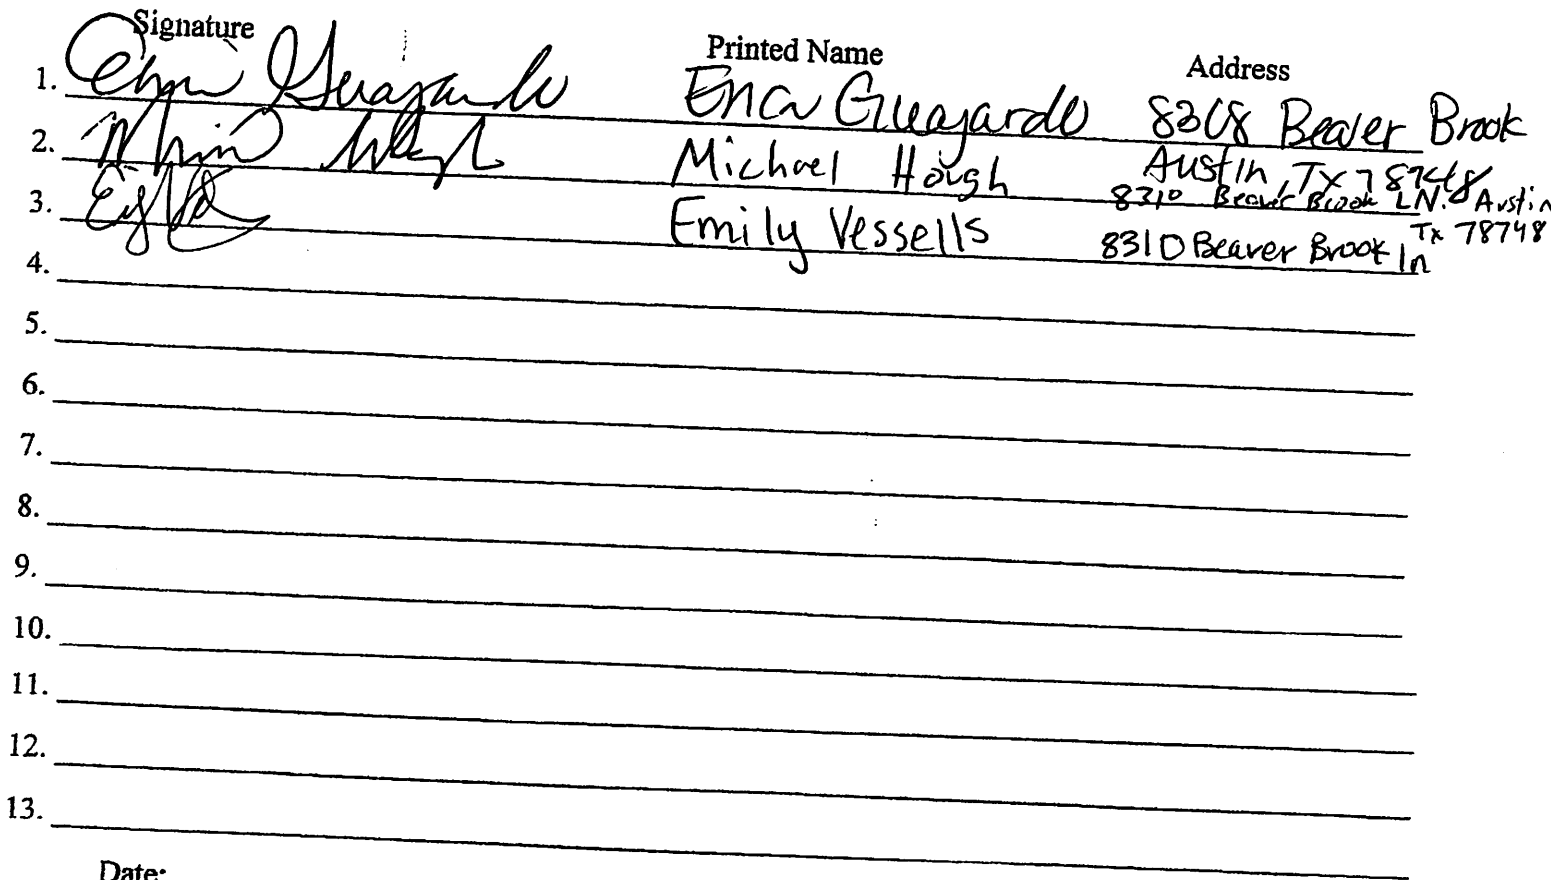 Signature Printed Name Address
1. Erica Guajardo 8308 Beaver Brook
Austin, TX 78748
2. Michael Hough 8310 Beaver Brook LN. Austin
Tx 78748
3. Emily Vessells 8310 Beaver Brook ln
4.
5.
6.
7.
8.
9.
10.
11.
12.
13.
Date: